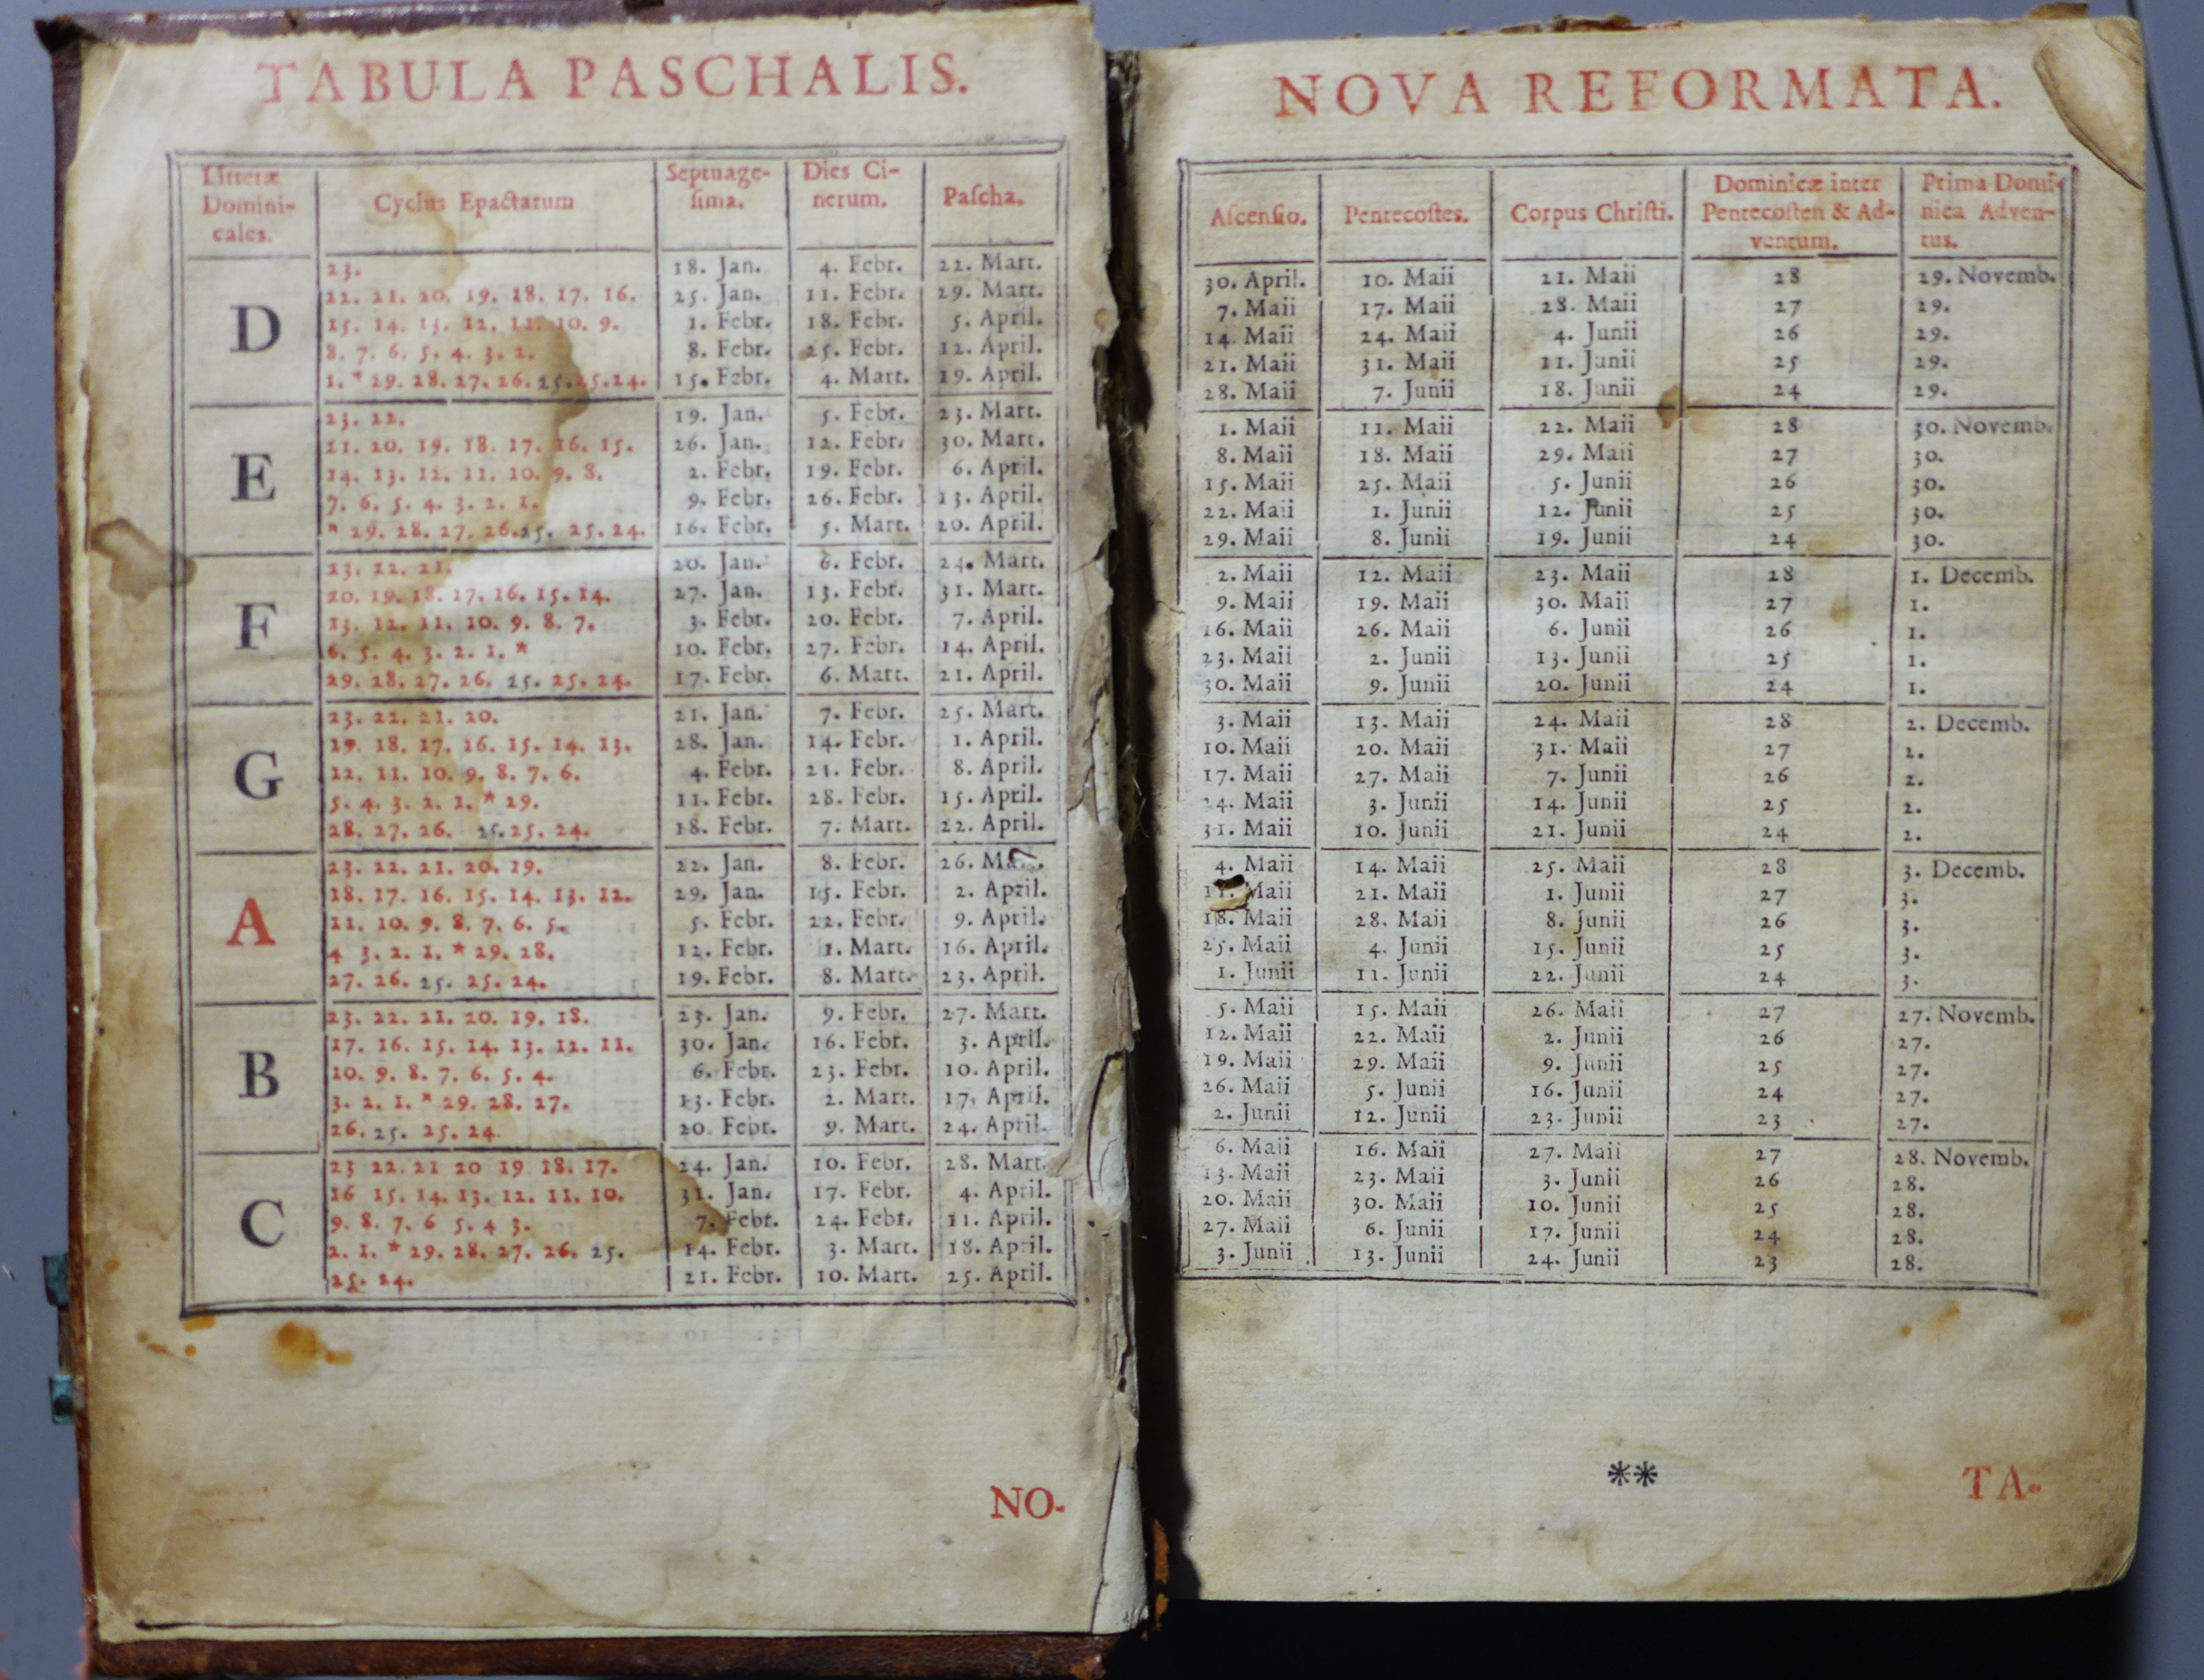 TABULA PASCHALIS.
Litteræ Domini- cales. Cyclus Epactarum Septuage- sima. Dies Ci- nerum. Pascha.
D
23. 18. Jan. 4. Febr. 22. Mart.
22. 21. 20. 19. 18. 17. 16. 25. Jan. 11. Febr. 29. Mart.
15. 14. 13. 12. 11. 10. 9. 1. Febr. 18. Febr. 5. April.
8. 7. 6. 5. 4. 3. 2. 8. Febr. 25. Febr. 12. April.
1. * 29. 28. 27. 26. 25. 25. 24. 15. Febr. 4. Mart. 19. April.
E
23. 22. 19. Jan. 5. Febr. 23. Mart.
21. 20. 19. 18. 17. 16. 15. 26. Jan. 12. Febr. 30. Mart.
14. 13. 12. 11. 10. 9. 8. 2. Febr. 19. Febr. 6. April.
7. 6. 5. 4. 3. 2. 1. 9. Febr. 26. Febr. 13. April.
* 29. 28. 27. 26. 25. 25. 24. 16. Febr. 5. Mart. 20. April.
F
23. 22. 21. 20. Jan. 6. Febr. 24. Mart.
20. 19. 18. 17. 16. 15. 14. 27. Jan. 13. Febr. 31. Mart.
13. 12. 11. 10. 9. 8. 7. 3. Febr. 20. Febr. 7. April.
6. 5. 4. 3. 2. 1. * 10. Febr. 27. Febr. 14. April.
29. 28. 27. 26. 25. 25. 24. 17. Febr. 6. Mart. 21. April.
G
23. 22. 21. 20. 21. Jan. 7. Febr. 25. Mart.
19. 18. 17. 16. 15. 14. 13. 28. Jan. 14. Febr. 1. April.
12. 11. 10. 9. 8. 7. 6. 4. Febr. 21. Febr. 8. April.
5. 4. 3. 2. 1. * 29. 11. Febr. 28. Febr. 15. April.
28. 27. 26. 25. 25. 24. 18. Febr. 7. Mart. 22. April.
A
23. 22. 21. 20. 19. 22. Jan. 8. Febr. 26.
18. 17. 16. 15. 14. 13. 12. 29. Jan. 15. Febr. 2. April.
11. 10. 9. 8. 7. 6. 5. 5. Febr. 22. Febr. 9. April.
4 3. 2. 1. * 29. 28. 12. Febr. 1. Mart. 16. April.
27. 26. 25. 25. 24. 19. Febr. 8. Mart. 23. April.
B
23. 22. 21. 20. 19. 18. 23. Jan. 9. Febr. 27. Mart.
17. 16. 15. 14. 13. 12. 11. 30. Jan. 16. Febr. 3. April.
10. 9. 8. 7. 6. 5. 4. 6. Febr. 23. Febr. 10. April.
3. 2. 1. * 29. 28. 27. 13. Febr. 2. Mart. 17. April.
26. 25. 25. 24. 20. Febr. 9. Mart. 24. April.
C
23 22. 21 20 19 18. 17. 24. Jan. 10. Febr. 28. Mart.
16 15. 14. 13. 12. 11. 10. 31. Jan. 17. Febr. 4. April.
9. 8. 7. 6 5. 4 3. 7. Febr. 24. Febr. 11. April.
2. 1. * 29. 28. 27. 26. 25. 14. Febr. 3. Mart. 18. April.
25. 24. 21. Febr. 10. Mart. 25. April.
NO-
NOVA REFORMATA.
Ascensio. Pentecostes. Corpus Christi. Dominicæ inter Pentecosten & Ad- ventum. Prima Domi- nica Adven- tus.
30. April. 10. Maii 21. Maii 28 29. Novemb.
7. Maii 17. Maii 28. Maii 27 29.
14 Maii 24. Maii 4. Junii 26 29.
21. Maii 31. Maii 11. Junii 25 29.
28. Maii 7. Junii 18. Junii 24 29.
1. Maii 11. Maii 22. Maii 28 30. Novemb.
8. Maii 18. Maii 29. Maii 27 30.
15. Maii 25. Maii 5. Junii 26 30.
22. Maii 1. Junii 12. Junii 25 30.
29. Maii 8. Junii 19. Junii 24 30.
2. Maii 12. Maii 23. Maii 28 1. Decemb.
9. Maii 19. Maii 30. Maii 27 1.
16. Maii 26. Maii 6. Junii 26 1.
23. Maii 2. Junii 13. Junii 25 1.
30. Maii 9. Junii 20. Junii 24 1.
3. Maii 13. Maii 24. Maii 28 2. Decemb.
10. Maii 20. Maii 31. Maii 27 2.
17. Maii 27. Maii 7. Junii 26 2.
24. Maii 3. Junii 14. Junii 25 2.
31. Maii 10. Junii 21. Junii 24 2.
4. Maii 14. Maii 25. Maii 28 3. Decemb.
Maii 21. Maii 1. Junii 27 3.
18. Maii 28. Maii 8. Junii 26 3.
25. Maii 4. Junii 15. Junii 25 3.
1. Junii 11. Junii 22. Junii 24 3.
5. Maii 15. Maii 26. Maii 27 27. Novemb.
12. Maii 22. Maii 2. Junii 26 27.
19. Maii 29. Maii 9. Junii 25 27.
26. Maii 5. Junii 16. Junii 24 27.
2. Junii 12. Junii 23. Junii 23 27.
6. Maii 16. Maii 27. Maii 27 28. Novemb.
13. Maii 23. Maii 3. Junii 26 28.
20. Maii 30. Maii 10. Junii 25 28.
27. Maii 6. Junii 17. Junii 24 28.
3. Junii 13. Junii 24. Junii 23 28.
** TA-